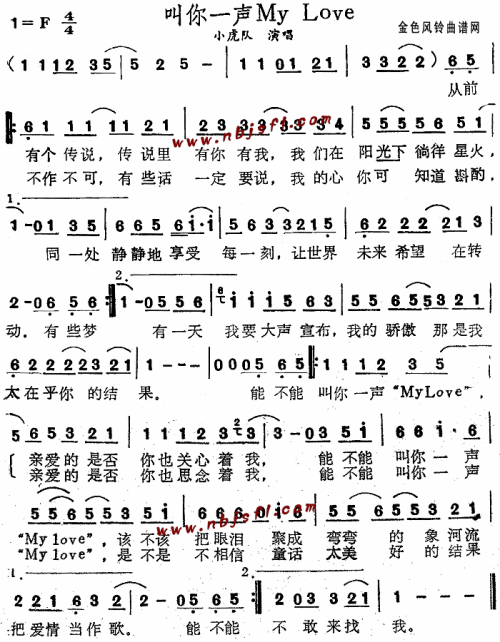 叫你一声My Love
1=F 4/4
小虎队 演唱
金色风铃曲谱网
(1 1 12 35 | 5 25 - | 11 01 21 | 3322) 65
从前
61 11 11 21 | 23 33 33 33 | 55 56 56 51
有个 传说, 传说里 有你 有我, 我们在 阳光下 徜徉 星火,
不作 不可, 有些话 一定 要说, 我的心 你可 知道 斟酌,
www.nbjsfl.com
1.
1 - 01 35 | 66 65 6i·i | 56 33 3215 | 62 22 22 13
同一处 静静地 享受 每一刻, 让世界 未来 希望 在转
2.
2 - 06 56 :| 1 - 05 56 | i i i 56 | 55 65 53 21
动. 有些梦 有一天 我要大声 宣布, 我的 骄傲 那是我
62 22 23 21 | 1 - - - | 000 5 65 |: 11 12 35
太在乎你 的结果. 能不能 叫你一声 “MyLove”,
5 65 53 21 | 11 12 33 | 3 - 03 5i | 66 i·6
亲爱的 是否 你也关心着我, 能不能 叫你一声
亲爱的 是否 你也思念着我, 能不能 叫你一声
“My love”, 该不该 把眼泪 聚成 弯弯 的 象河流
“My love”, 是不是 不相信 童话 太美 好的 结果
www.nbjsfl.com
1.
2.
2 21 63 2 | 2 - 02 65 :| 2 03 23 21 | 1 - - -
把爱情当作歌. 能不能 不敢来找 我.